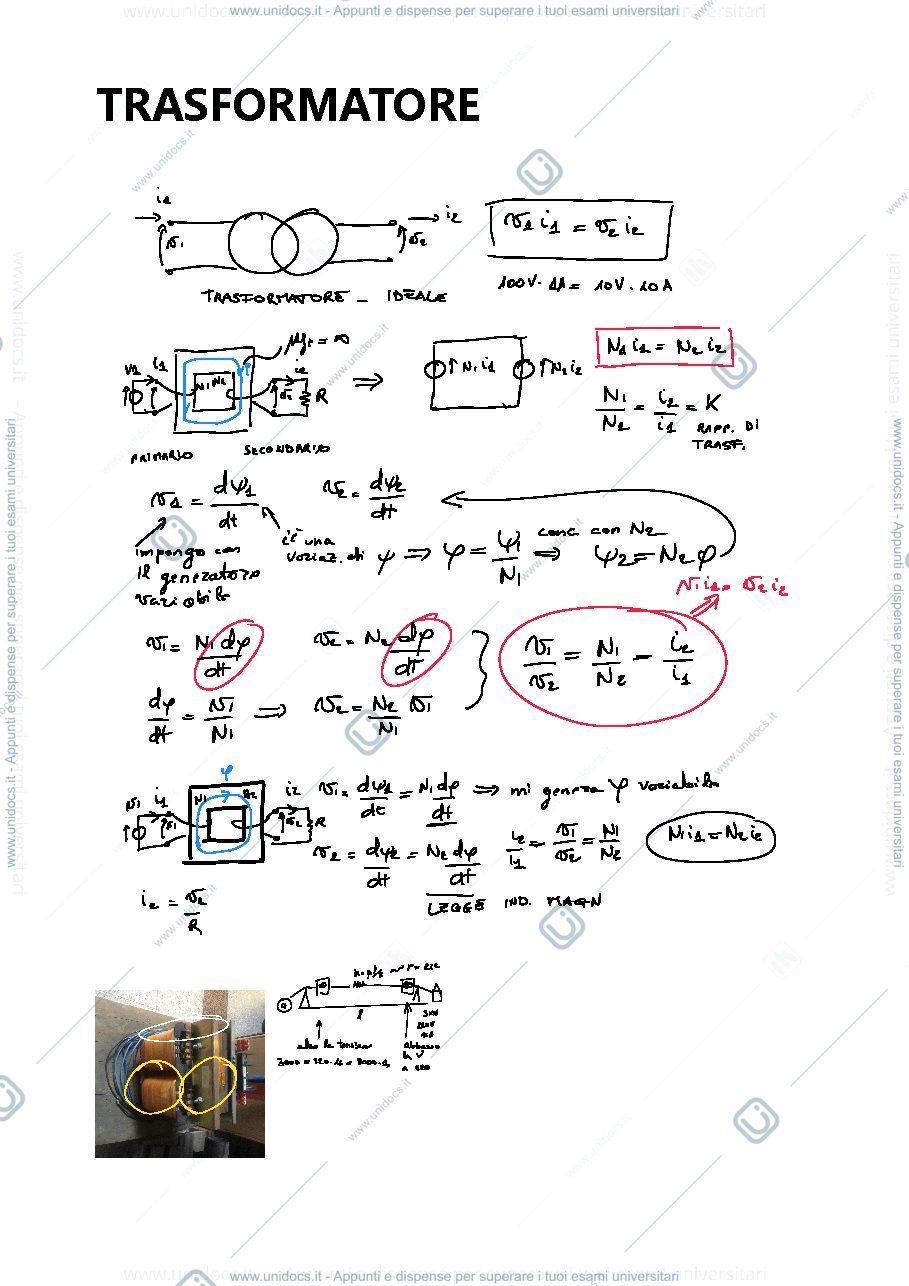 www.unidocs.it - Appunti e dispense per superare i tuoi esami universitari
TRASFORMATORE
i1 i2
v1 v2
v1 i1 = v2 i2
TRASFORMATORE - IDEALE
100V · 1A = 10V · 10A
μfe = ∞
V1 i1 N1 N2 i2 v2 R
⇒ N1 i1 N2 i2
N1 i1 = N2 i2
N1/N2 = i2/i1 = K
RAPP. DI
TRASF.
PRIMARIO SECONDARIO
v1 = dψ1/dt v2 = dψ2/dt
impongo con
il generatore
variabile
c'è una
variaz. di φ ⇒ φ = ψ1/N1 ⇒ conc con N2 ψ2 = N2 φ
v1 = N1 dφ/dt v2 = N2 dφ/dt
v1/v2 = N1/N2 = i2/i1
dφ/dt = v1/N1 ⇒ v2 = N2/N1 v1
φ
v1 i1 v1 N1 N2 i2 v2 R
v1 = dψ1/dt = N1 dφ/dt ⇒ mi genera φ variabile
v2 = dψ2/dt = N2 dφ/dt
i2/i1 = v1/v2 = N1/N2
N1 i1 = N2 i2
LEGGE IND. MAGN
i2 = v2/R
l
alzo la tensione
abbasso
la V
a 220
www.unidocs.it - Appunti e dispense per superare i tuoi esami universitari